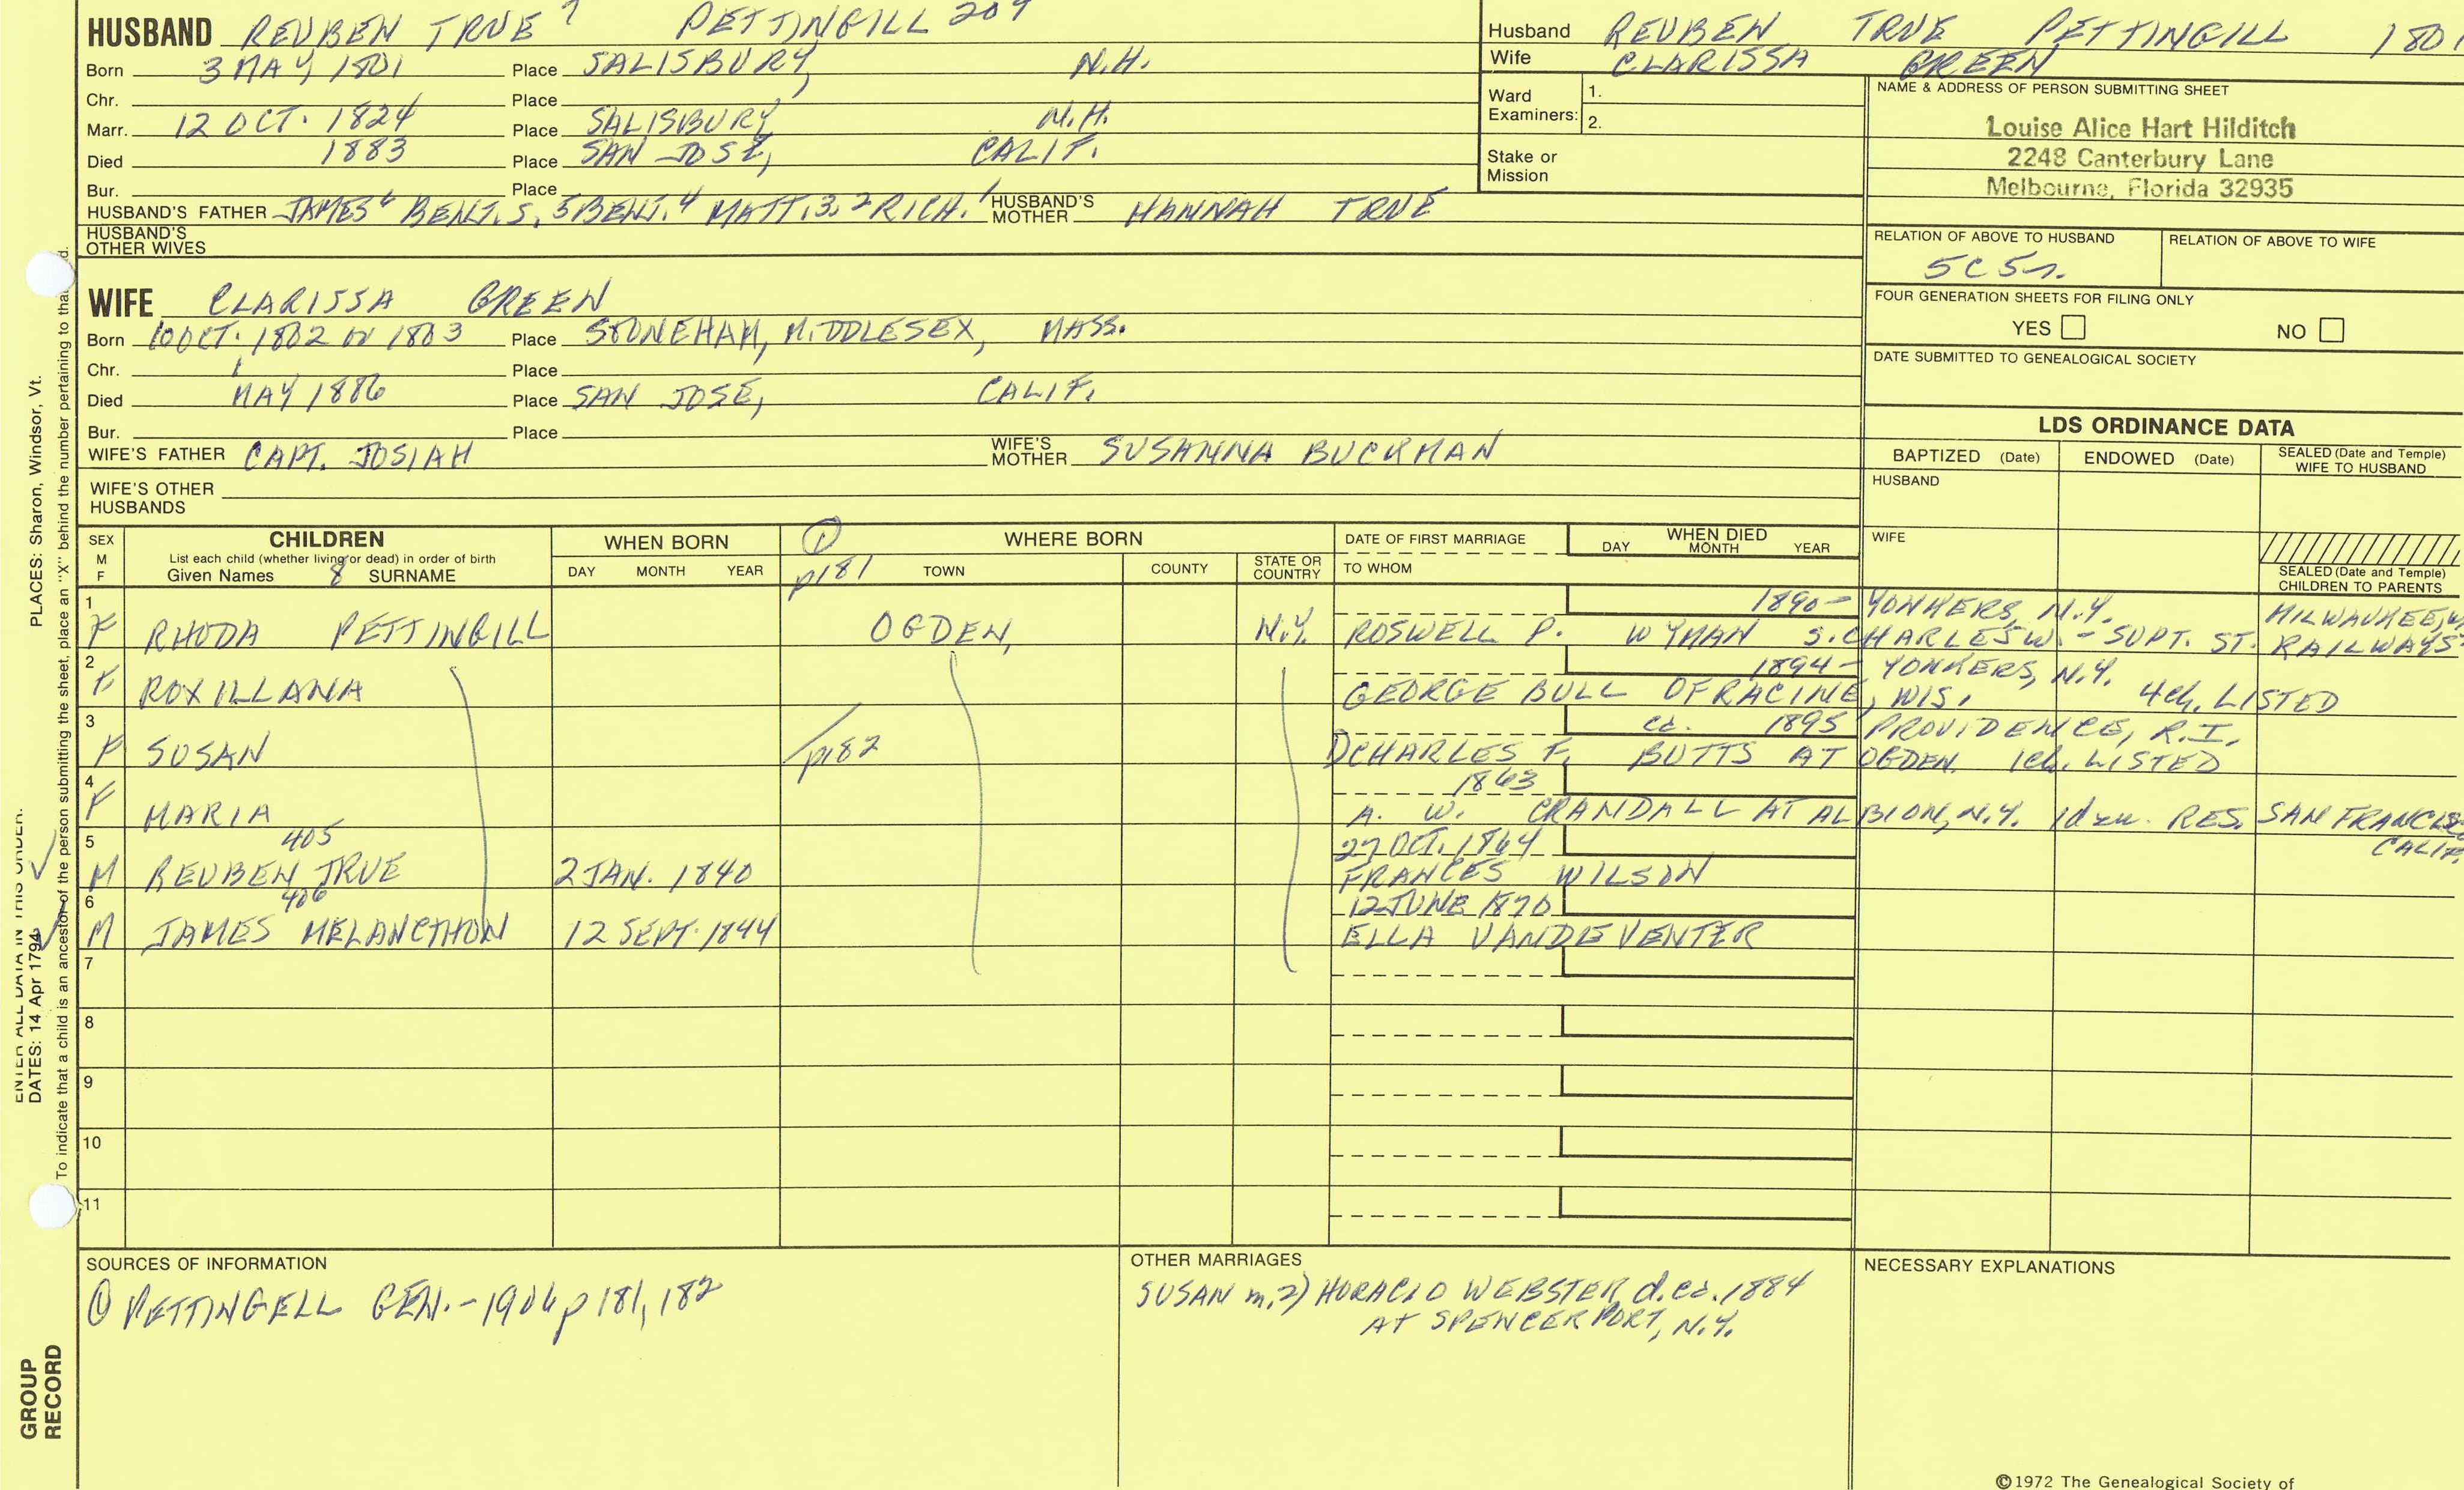 HUSBAND REUBEN TRUE 7 PETTINGILL 209
Born 3 MAY, 1801 Place SALISBURY, N.H.
Chr. Place
Marr. 12 OCT. 1824 Place SALISBURY, N.H.
Died 1883 Place SAN JOSE, CALIF.
Bur. Place
HUSBAND'S FATHER JAMES 6 BENJ. 5, BENJ. 4 MATT. 3, 2 RICH. 1 HUSBAND'S MOTHER HANNAH TRUE
HUSBAND'S OTHER WIVES
Husband REUBEN TRUE PETTINGILL 1801
Wife CLARISSA GREEN
Ward Examiners: 1.
2.
Stake or Mission
NAME & ADDRESS OF PERSON SUBMITTING SHEET
Louise Alice Hart Hilditch
2248 Canterbury Lane
Melbourne, Florida 32935
RELATION OF ABOVE TO HUSBAND RELATION OF ABOVE TO WIFE
5C5r.
FOUR GENERATION SHEETS FOR FILING ONLY
YES NO
DATE SUBMITTED TO GENEALOGICAL SOCIETY
WIFE CLARISSA GREEN
Born 10 OCT. 1802 or 1803 Place STONEHAM, MIDDLESEX, MASS.
Chr. Place
Died MAY 1886 Place SAN JOSE, CALIF.
Bur. Place
WIFE'S FATHER CAPT. JOSIAH WIFE'S MOTHER SUSANNA BUCKMAN
WIFE'S OTHER HUSBANDS
LDS ORDINANCE DATA
BAPTIZED (Date) ENDOWED (Date) SEALED (Date and Temple) WIFE TO HUSBAND
HUSBAND
WIFE
SEALED (Date and Temple) CHILDREN TO PARENTS
SEX M F
CHILDREN
List each child (whether living or dead) in order of birth
Given Names 8 SURNAME
WHEN BORN
DAY MONTH YEAR
1 p181
WHERE BORN
TOWN COUNTY STATE OR COUNTRY
DATE OF FIRST MARRIAGE
TO WHOM
WHEN DIED
DAY MONTH YEAR
1 1890 - YONKERS, N.Y. MILWAUKEE, W
F RHODA PETTINGILL OGDEN, N.Y. ROSWELL P. WYMAN S. CHARLES W. - SUPT. ST. RAILWAYS
2 1894 - YONKERS, N.Y.
F ROXILLANA GEORGE BULL OF RACINE, WIS. 4 ch. LISTED
3 ca. 1895 PROVIDENCE, R.I.
F SUSAN p182 CHARLES F. BUTTS AT OGDEN. 1 ch. LISTED
4 1863
F MARIA A. W. CRANDALL AT ALBION, N.Y. 1 dau. RES. SAN FRANCISCO CALIF.
5 405 27 OCT. 1864
M REUBEN TRUE 2 JAN. 1840 FRANCES WILSON
6 406 12 JUNE 1870
M JAMES MELANCTHON 12 SEPT. 1844 ELLA VANDEVENTER
7
8
9
10
11
SOURCES OF INFORMATION
1 PETTINGELL GEN. - 1906 p 181, 182
OTHER MARRIAGES
SUSAN m. 2) HORACIO WEBSTER, d. ca. 1884
AT SPENCERPORT, N.Y.
NECESSARY EXPLANATIONS
©1972 The Genealogical Society of
PLACES: Sharon, Windsor, Vt.
ENTER ALL DATA IN THIS ORDER:
DATES: 14 Apr 1794
To indicate that a child is an ancestor of the person submitting the sheet, place an "X" behind the number pertaining to that
GROUP RECORD